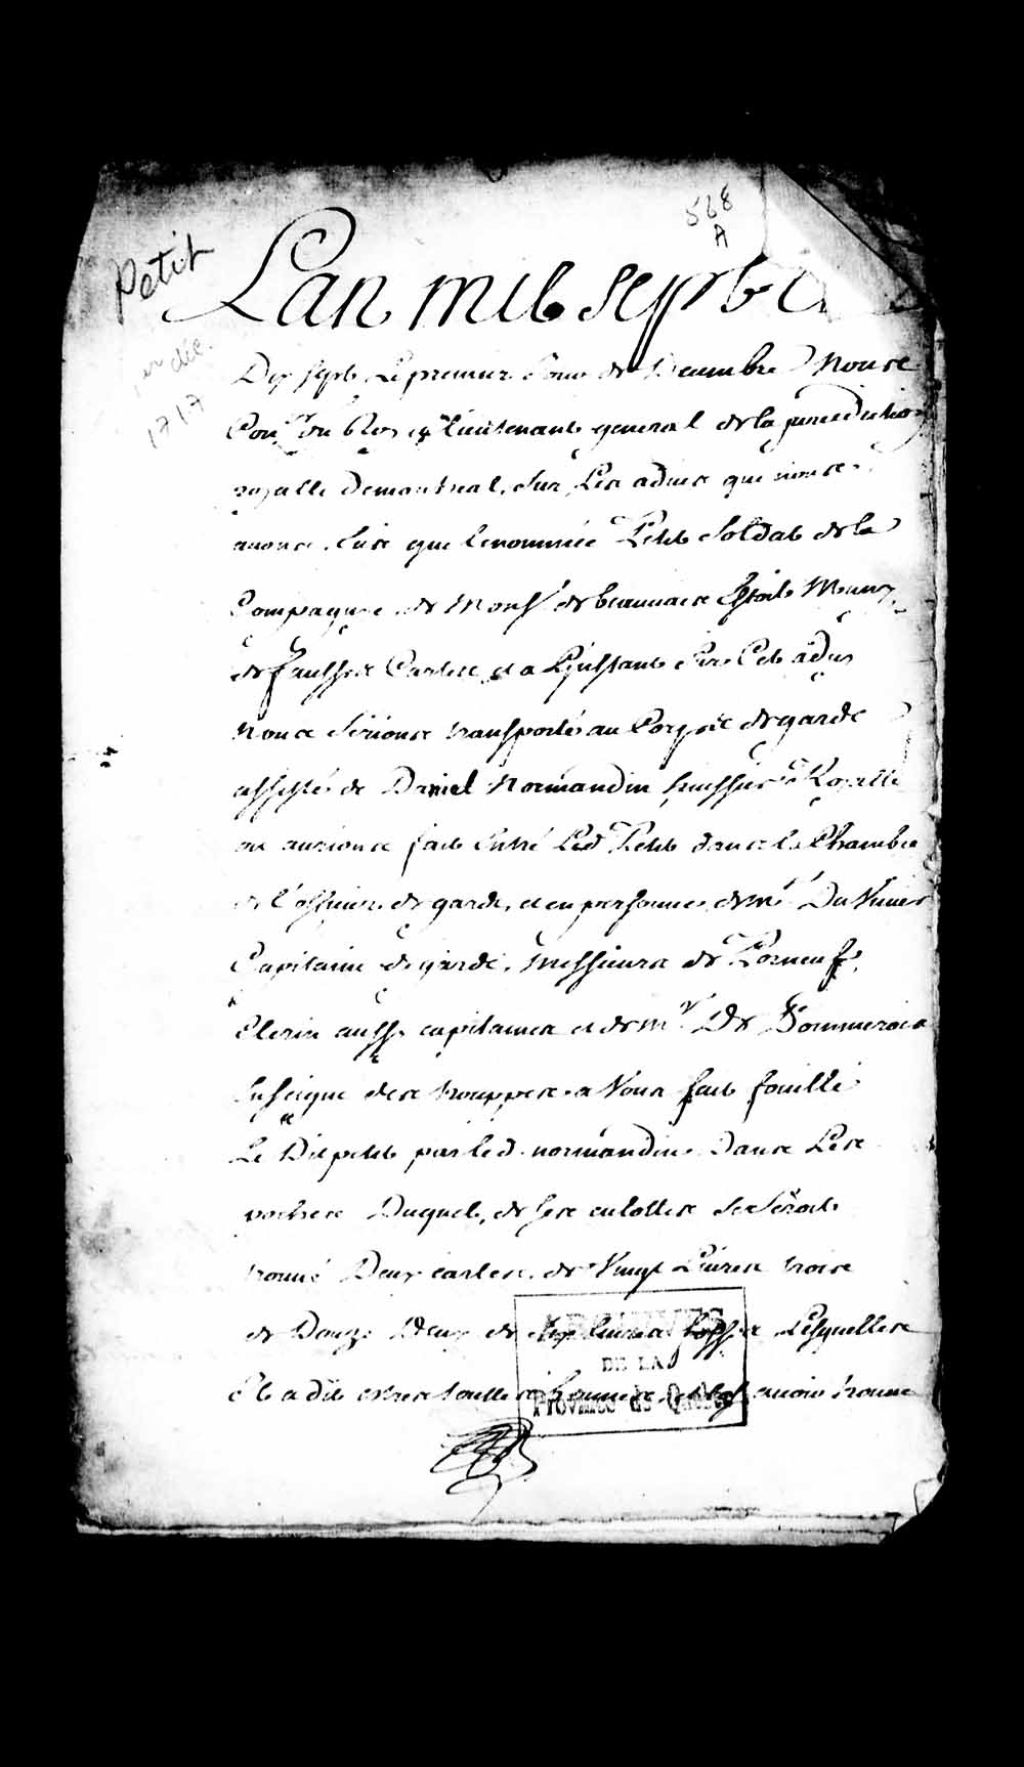 568
A
Petit
1er déc.
1717
Lan mil sept
Dix sept Le premier Jour de Decembre Nous
Con.er du Roy et Lieutenant general de la jurisdiction
royalle demontreal, sur Les aduis que nous
auons Eus que lenommé Petit soldat de la
Compagnie de Mons.r de beauuais Estoit Muny
de fausses Cartes, et a L'instant sur Cet aduis
Nous serions transporté au Corps de garde
assisté de Daniel Normandin huissier Royalle
ou aurions fait Entré Led. Petit dans la Chambre
de l'officier de garde, et en personnes de m.r Du Viuier
Capitaine de garde, Messieurs de Porneuf
Blerin aussy capitaines et de m.r De
Enseigne des trouppes a Nous fait fouillé
Le Dit petit par led. normandin dans Les
poches Duquel, de ses culottes se seroit
trouué Deux cartes de Vingt Liures trois
de Douze Deux de Lesquelles
Il a dit estre touttes auoir trouué
ARCHIVES
DE LA
Province de Québec